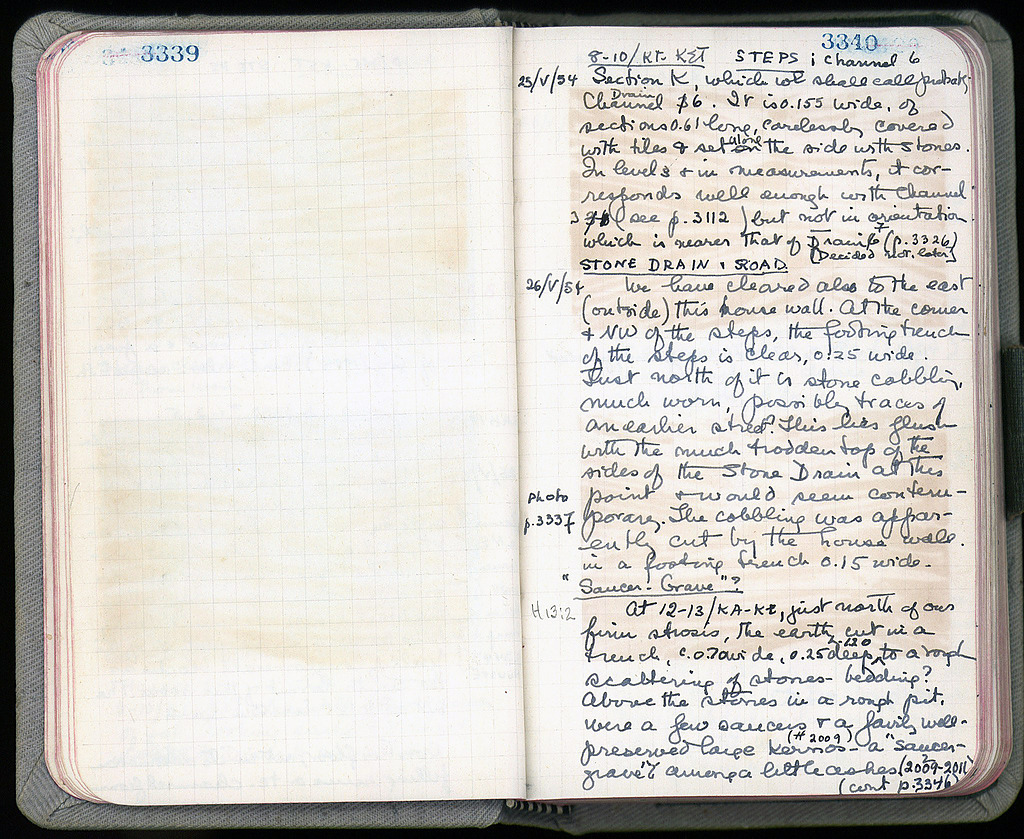 3339
3340
8-10/KT-KET STEPS; Channel 6
25/V/54 Section K, which we shall call
Drain
Channel 6. It is 0.155 wide, of
sections 0.61 long, carelessly covered
with tiles & set along the side with stones.
In levels & in measurements, it cor-
responds well enough with Channel
3 (see p. 3112) but not in orientation
which is nearer that of Drain 7 (p. 3326)
[Decided not, later]
STONE DRAIN & ROAD
26/V/54 We have cleared also to the east
(outside) this house wall. At the corner
& NW of the steps, the footing trench
of the steps is clear, 0.25 wide.
Just north of it is stone cobbling,
much worn, possibly traces of
an earlier street. This lies flush
with the much trodden top of the
sides of the Stone Drain at this
photo point & would seem contem-
p.3337 porary. The cobbling was appar-
ently cut by the house wall.
in a footing trench 0.15 wide.
"Saucer-Grave"?
H13:2 At 12-13/KA-KE, just north of our
firm strosis, the earth cut in a
trench, c. 0.70 wide, 0.25 deep, to a rough
scattering of stones - bedding?
Above the stones in a rough pit,
were a few saucers & a fairly well-
preserved large Kernos - a "saucer-
(# 2009)
grave"? among a little ashes (2009-2011)
(cont p.3346)